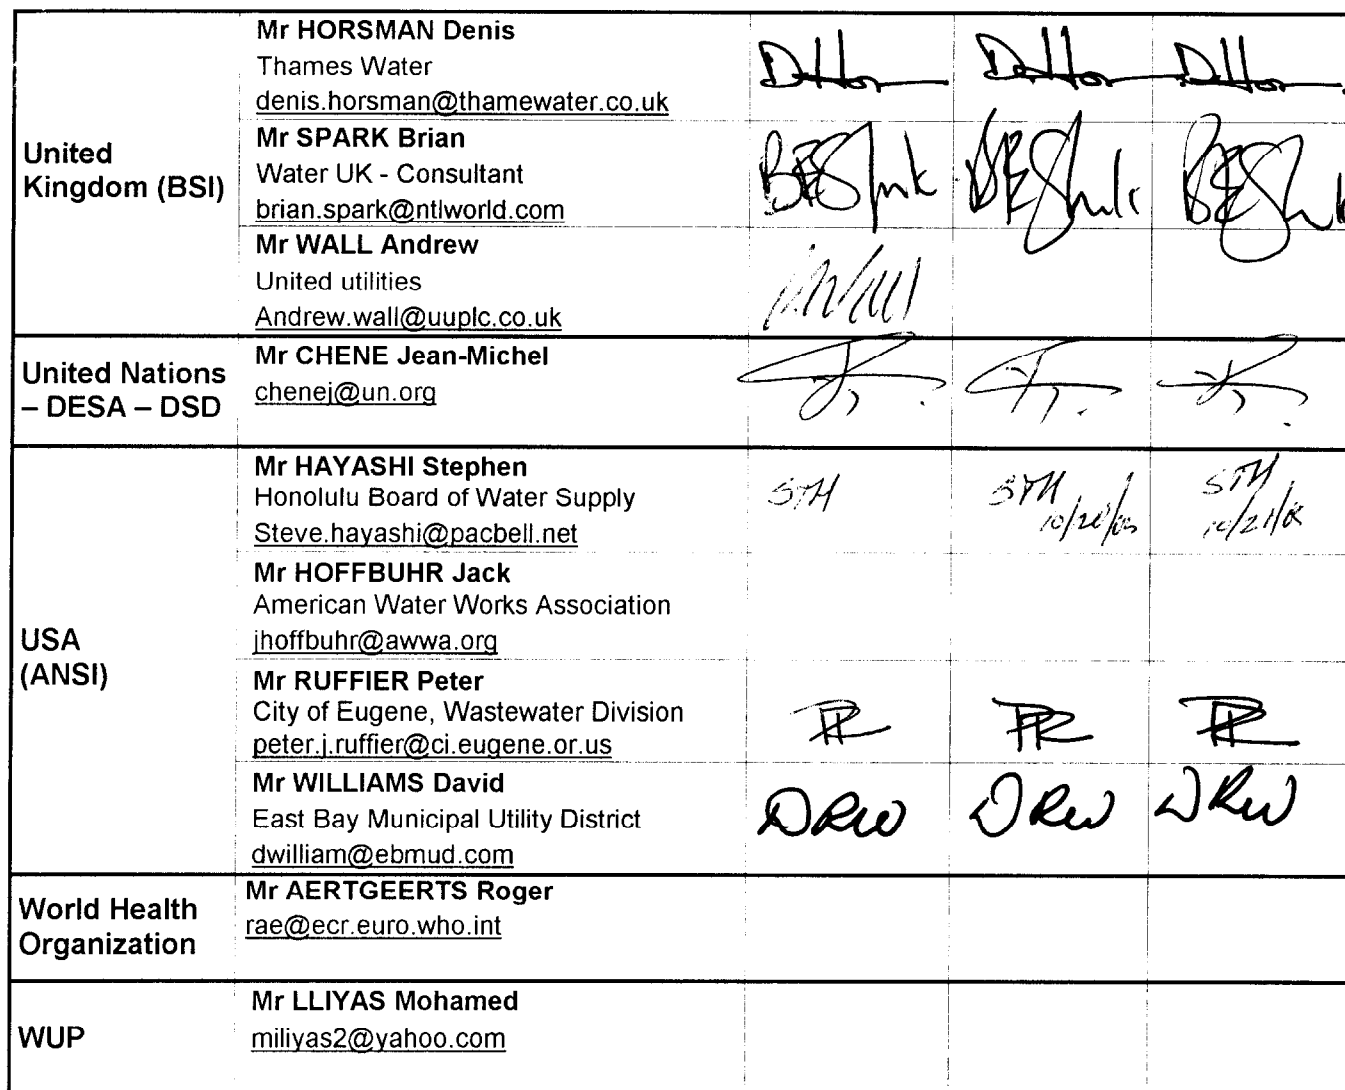 United
Kingdom (BSI)
Mr HORSMAN Denis
Thames Water
denis.horsman@thamewater.co.uk
Mr SPARK Brian
Water UK - Consultant
brian.spark@ntlworld.com
Mr WALL Andrew
United utilities
Andrew.wall@uuplc.co.uk
United Nations
– DESA – DSD
Mr CHENE Jean-Michel
chenej@un.org
USA
(ANSI)
Mr HAYASHI Stephen
Honolulu Board of Water Supply
Steve.hayashi@pacbell.net
STH STH STH
Mr HOFFBUHR Jack
American Water Works Association
jhoffbuhr@awwa.org
Mr RUFFIER Peter
City of Eugene, Wastewater Division
peter.j.ruffier@ci.eugene.or.us
Mr WILLIAMS David
East Bay Municipal Utility District
dwilliam@ebmud.com
DRW DRW DRW
World Health
Organization
Mr AERTGEERTS Roger
rae@ecr.euro.who.int
WUP
Mr LLIYAS Mohamed
miliyas2@yahoo.com